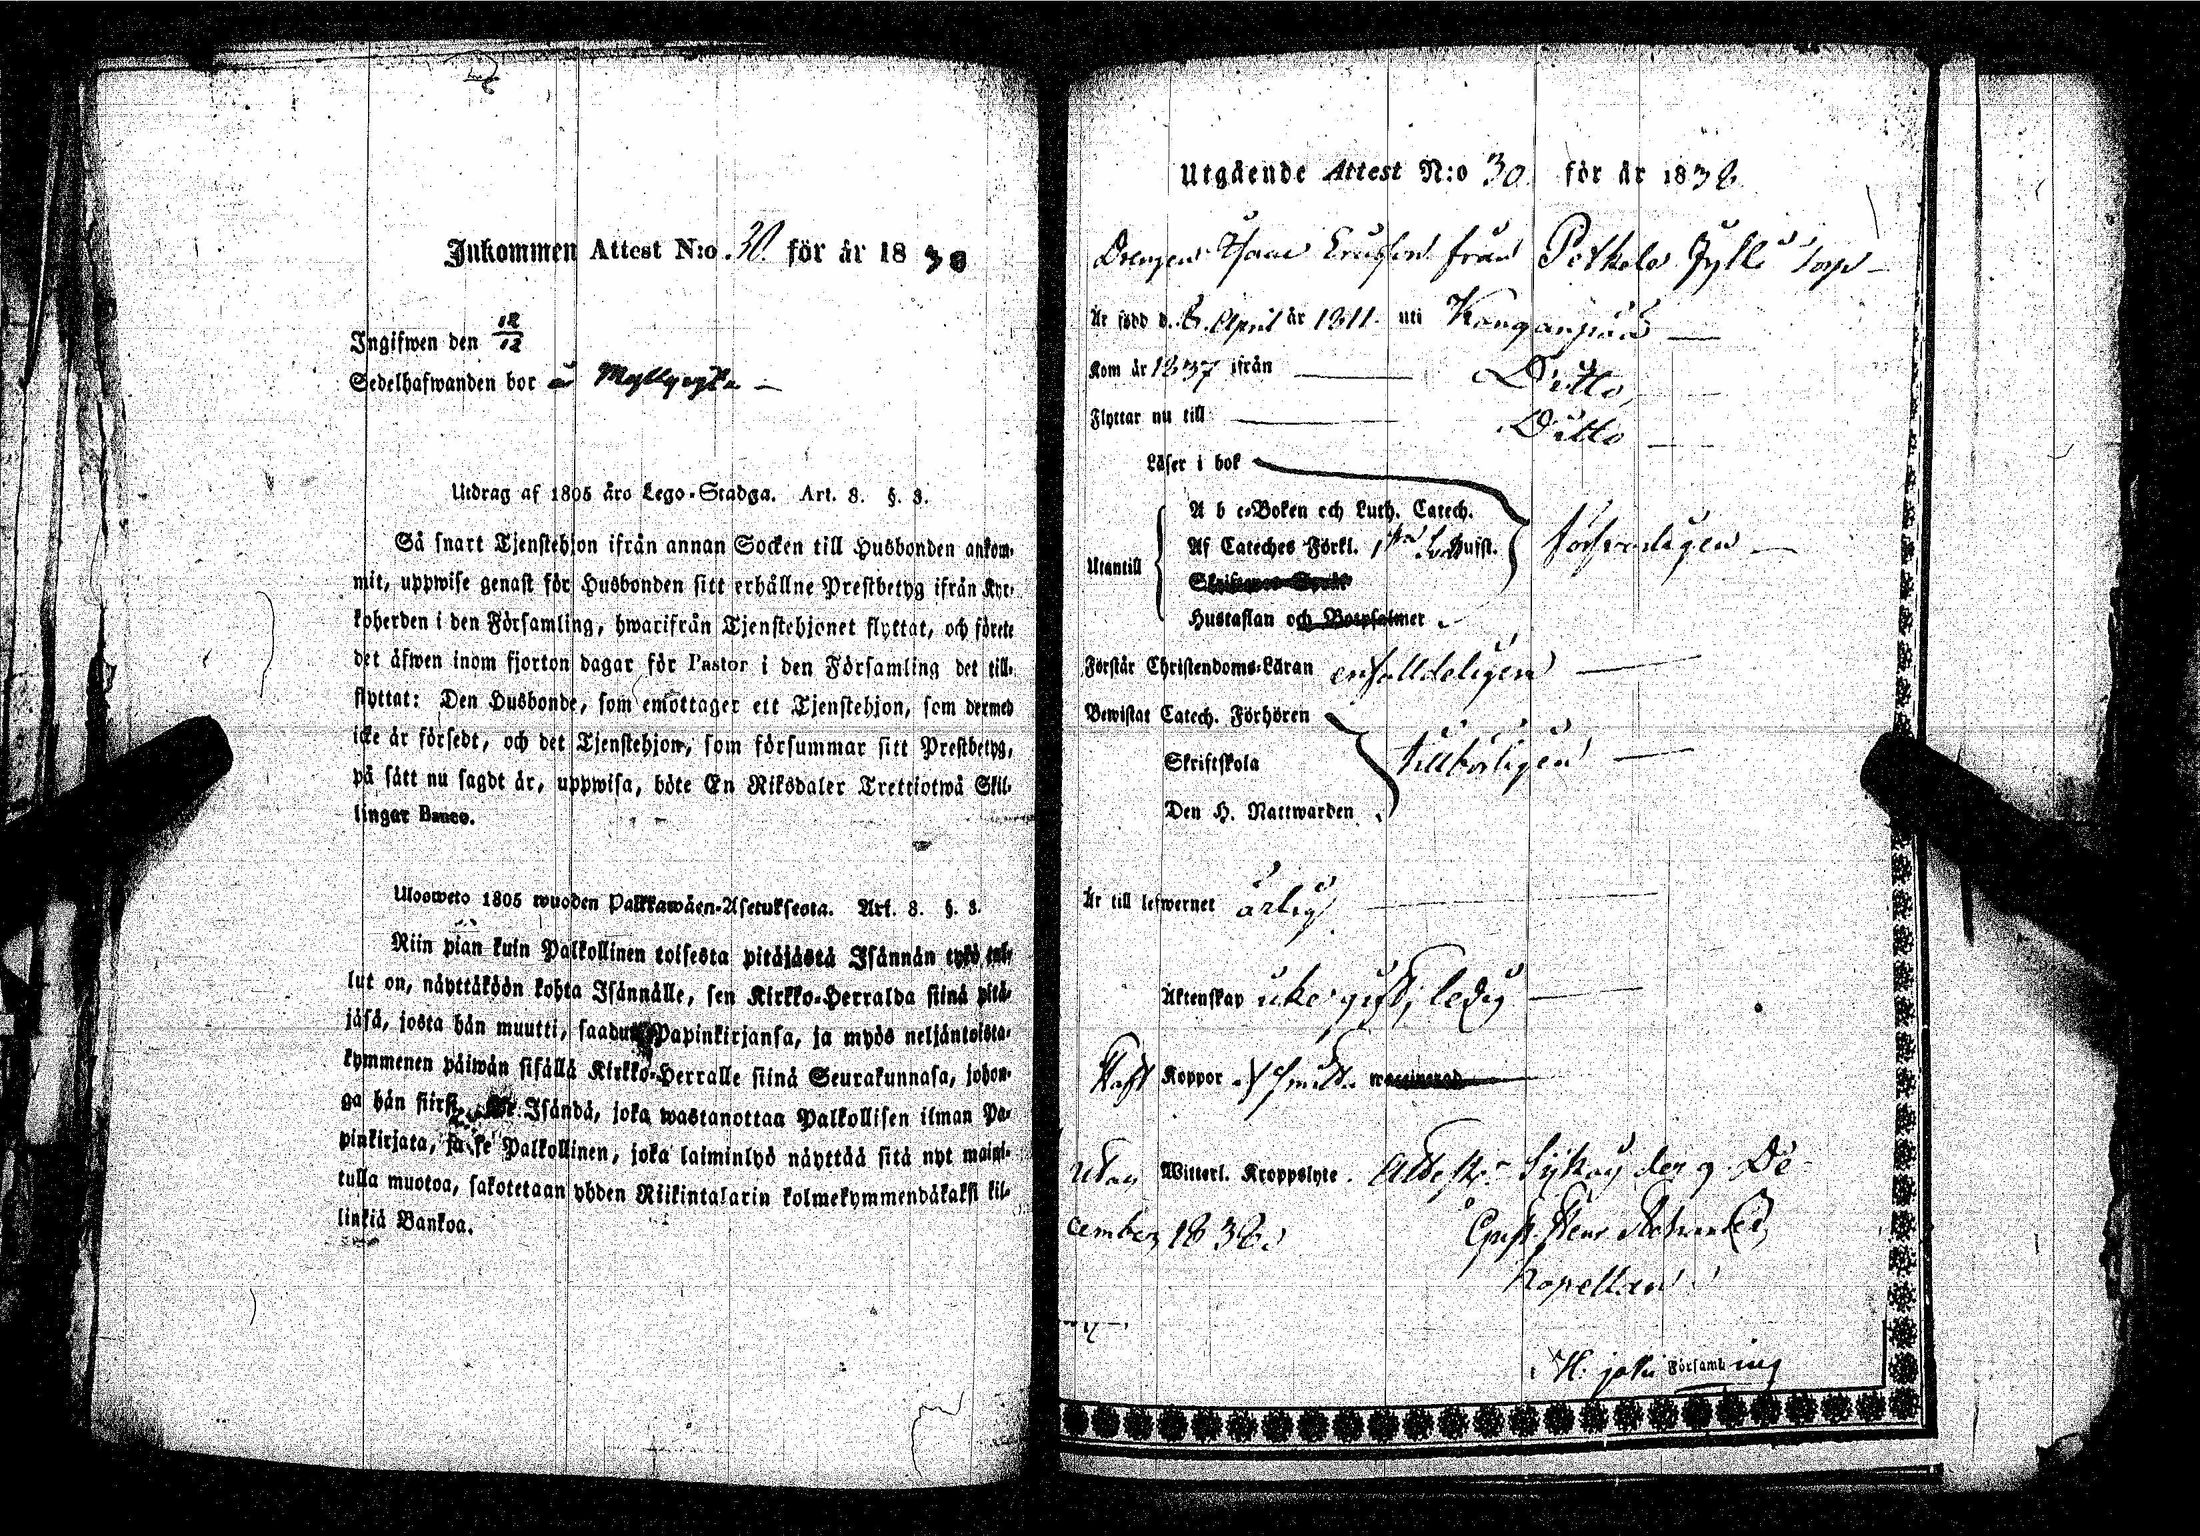 Inkommen Attest N:o 30. för år 1838
Ingifwen den 12/12
Sedelhafwanden bor å
Utdrag af 1805 års Lego-Stadga. Art. 8. §. 3.
Så snart Tjenstehjon ifrån annan Socken till Husbonden ankom-
mit, uppwise genast för Husbonden sitt erhållne Prestbetyg ifrån Kyr-
koherden i den Församling, hwarifrån Tjenstehjonet flyttat, och förete
det äfwen inom fjorton dagar för Pastor i den Församling det till-
flyttat: Den Husbonde, som emottager ett Tjenstehjon, som dermed
icke är försedt, och det Tjenstehjon, som försummar sitt Prestbetyg,
på sätt nu sagdt är, uppwisa, böte En Riksdaler Trettiotwå Skil-
lingar Banco.
Ulosweto 1805 wuoden Palkkawäen-Asetuksesta. Art. 8. §. 3.
Niin pian kuin Palkollinen toisesta pitäjästä Isännän tykö tul-
lut on, näyttäköön kohta Isännälle, sen Kirkko-Herralda siinä pitä-
jäsä, josta hän muutti, saadun Papinkirjansa, ja myös neljäntoista-
kymmenen päiwän sisällä Kirkko-Herralle siinä Seurakunnasa, johon-
ga hän siirsi Isändä, joka wastanottaa Palkollisen ilman Pa-
pinkirjata, ja se Palkollinen, joka laiminlyö näyttää sitä nyt maini-
tulla muotoa, sakotetaan yhden Riikintalarin kolmekymmendäkaksi kil-
linkiä Bankoa.
Utgående Attest N:o 30 för år 1838
Drengen Isaac från Pethola Jylli torp
Är född d. 8. April år 1811. uti Kanganpää
Kom år 1837 ifrån Ditto,
Flyttar nu till Ditto
Läser i bok
A b c-Boken och Luth. Catech.
Utantill
Af Cateches Förkl. Hufst.
försvarligen
Hustaflan och Botpsalmer
Förstår Christendoms-Läran enfalldeligen
Bewistat Catech. Förhören
Skriftskola
tillbörligen
Den H. Nattwarden
Är till lefwernet ärlig
Äktenskap icke gift, ledig
Haft Koppor
utan Witterl. Kroppslyte. den 9. De-
cember 1838.
Gust. Henr.
Kapellan
H: joki Församling